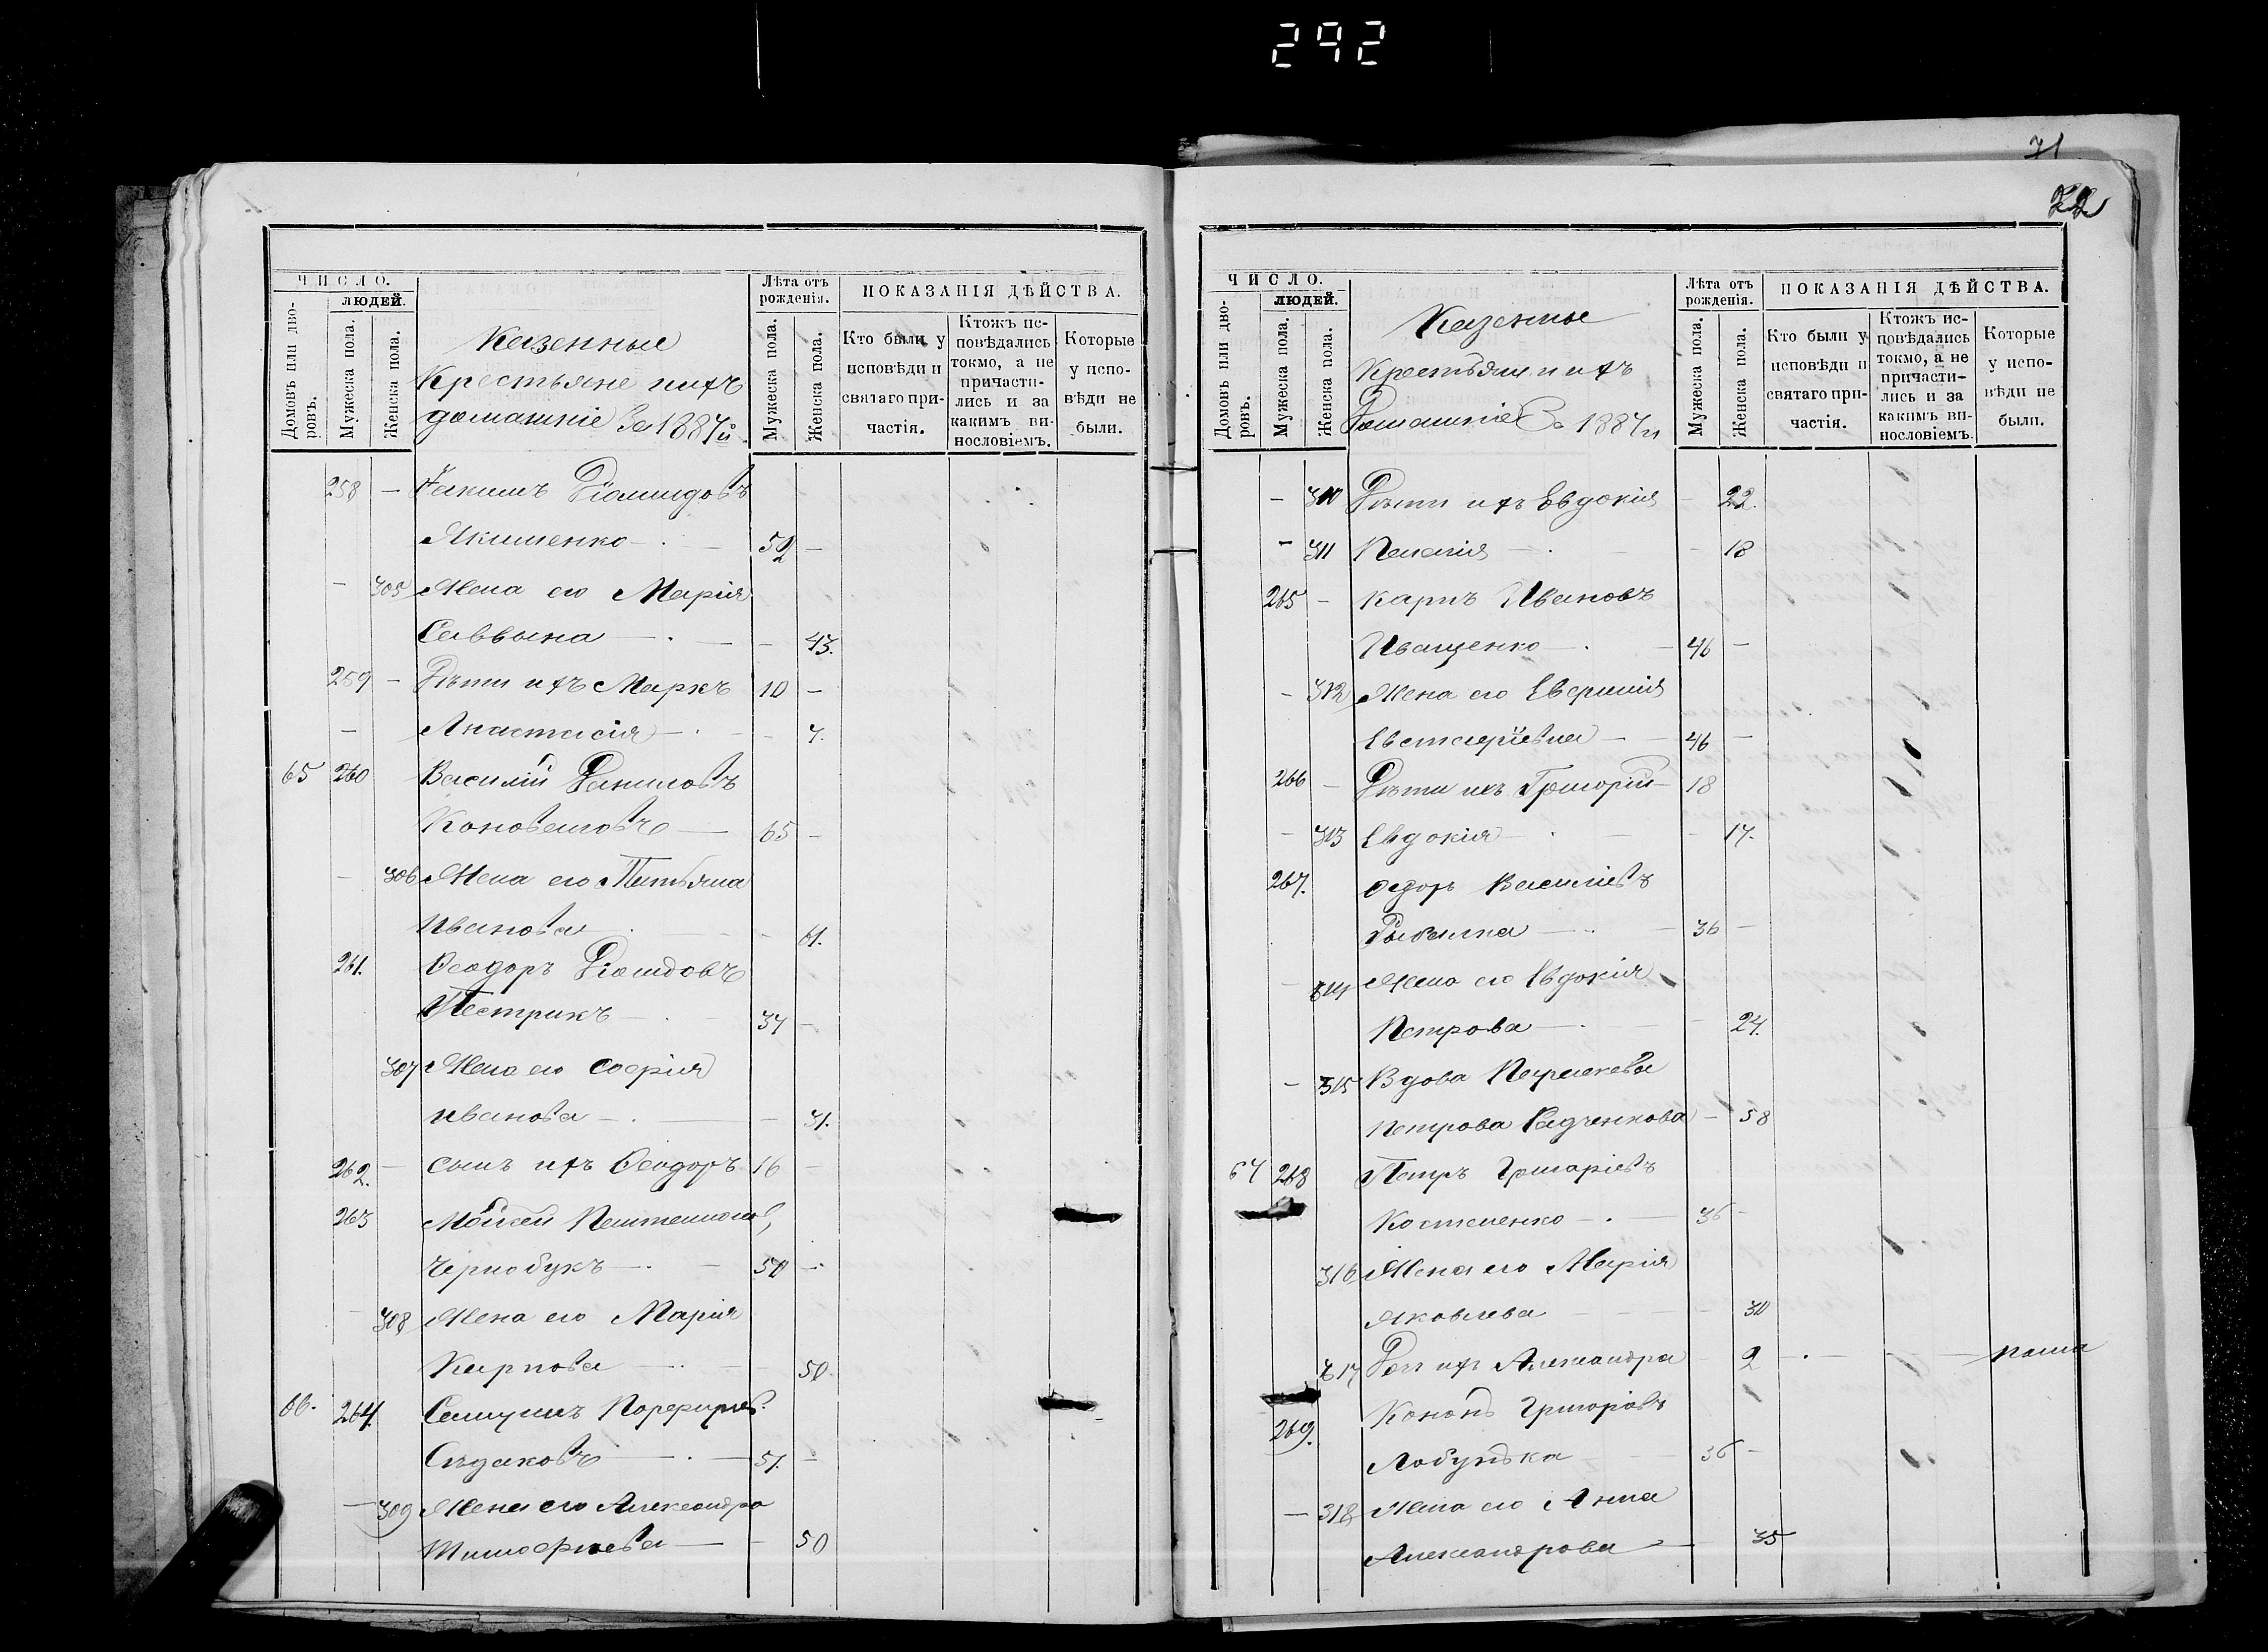 292
ЧИСЛО.
ЛЮДЕЙ.
Домовъ или дворовъ.
Мужеска пола.
Женска пола.
Казенные
Крестьяне и ихъ
домашніе За 1887й
Лѣта отъ рожденія.
Мужеска пола.
Женска пола.
ПОКАЗАНІЯ ДѢЙСТВА.
Кто были у исповѣди и святаго причастія.
Ктожъ исповѣдались токмо, а не причастились и за какимъ винословіемъ.
Которые у исповѣди не были.
258 — Іакимъ Діомидовъ
Якименко — 52 —
— 305 Жена его Марія
Саввына — — 43.
259 — Дѣти ихъ Маркъ 10 —
— Анастасія — — 7.
65 260 Василій Даниловъ
Коноваловъ — 65 —
— 306 Жена его Татьяна
Иванова — — 61.
261. Ѳеодоръ Діомидовъ
Пестрикъ — 34 —
307 Жена его Софія
Иванова — — 31.
262. — Сынъ ихъ Ѳеодоръ 16 —
263 Моѵсей
Чернобукъ — 50 —
— 308 Жена его Марія
Карпова — 50.
66. 264. Самуилъ Порфирьев.
Сѣдаковъ — 51. —
— 309 Жена его Александра
Тимофѣева — — 50
71
22
ЧИСЛО.
ЛЮДЕЙ.
Домовъ или дворовъ.
Мужеска пола.
Женска пола.
Казенные
Крестьяни и ихъ
Домашніе За 1887й
Лѣта отъ рожденія.
Мужеска пола.
Женска пола.
ПОКАЗАНІЯ ДѢЙСТВА.
Кто были у исповѣди и святаго причастія.
Ктожъ исповѣдались токмо, а не причастились и за какимъ винословіемъ.
Которые у исповѣди не были.
— 310 Дѣти ихъ Евдокія — 22.
— 311 Пелагія — — 18
265 — Карпъ Ивановъ
Иващенко — 46 —
— 312 Жена его Евфимія
Евстафіевна — 46 —
266 — Дѣти ихъ Григорій — 18
— 313 Евдокія — — 17.
267. Ѳедоръ Василіевъ
Рыбалка — 36 —
— 314 Жена его Евдокія
Петрова — — 24.
— 315 Вдова Параскева
Петрова Радченкова — 58
67 268 Петръ Григоріевъ
Костенко — 36 —
316 Жена его Марія
Яковлева — 30
317 Доч ихъ Александра 2 — — —
269. Кононъ Григоровъ
Лобунька — 36 —
— 318 Жена его Анна
Александрова — 35